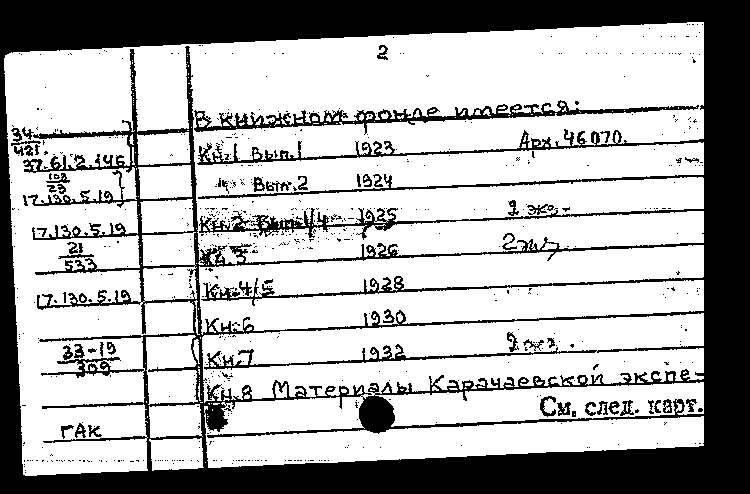 2
В книжном фонде имеется:
34
421.
37.61.2.146 Кн.1 Вып.1 1923 Арх. 46070.
102
23
17.130.5.19 " Вып.2 1924
17.130.5.19 Кн.2 Вып.1/4 1925 2 экз.
21
533 Кн.3 1926 2 экз
17.130.5.19 Кн.4/5 1928
Кн.6 1930
33-19
309 Кн.7 1932 2 экз.
Кн.8 Материалы Карачаевской экспе-
ГАК См. след. карт.